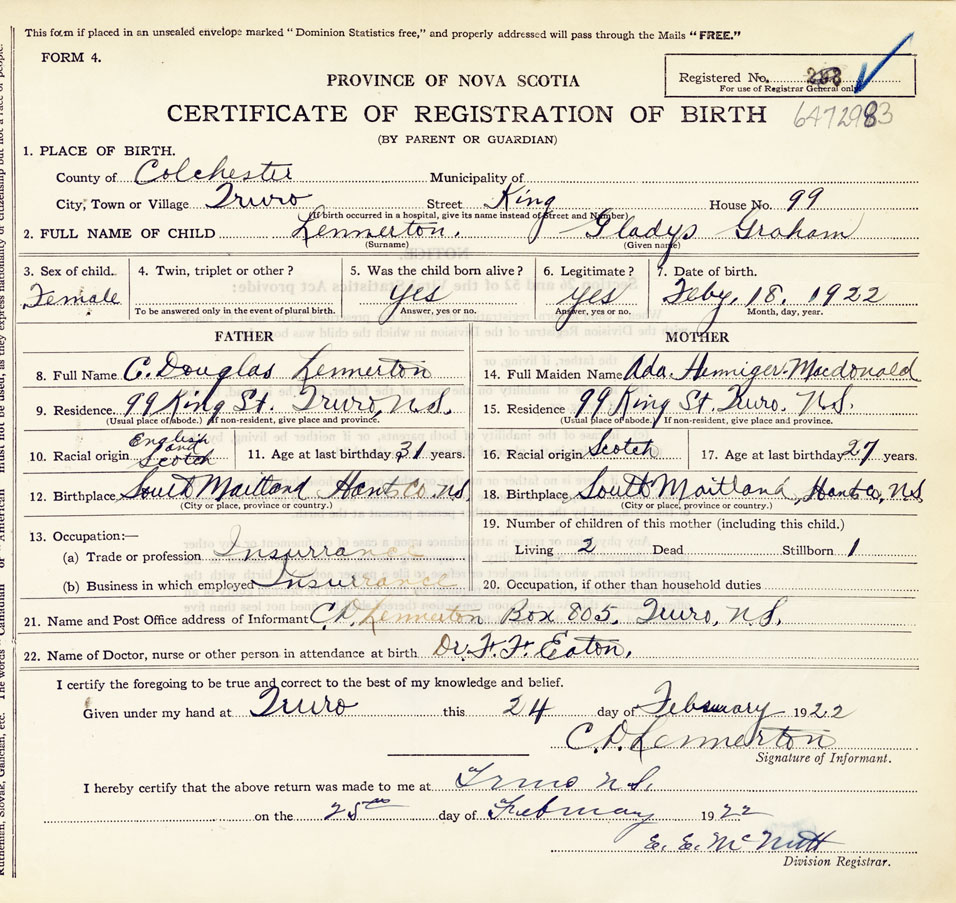 This form if placed in an unsealed envelope marked "Dominion Statistics free," and properly addressed will pass through the Mails "FREE."
FORM 4.
PROVINCE OF NOVA SCOTIA
Registered No.
For use of Registrar General only
CERTIFICATE OF REGISTRATION OF BIRTH 6472983
(BY PARENT OR GUARDIAN)
1. PLACE OF BIRTH.
County of Colchester Municipality of
City, Town or Village Truro Street King House No. 99
(If birth occurred in a hospital, give its name instead of Street and Number)
2. FULL NAME OF CHILD Lennerton. Gladys Graham
(Surname) (Given name)
3. Sex of child. 4. Twin, triplet or other? 5. Was the child born alive? 6. Legitimate? 7. Date of birth.
Female yes yes Feby. 18. 1922
To be answered only in the event of plural birth. Answer, yes or no. Answer, yes or no. Month, day, year.
FATHER MOTHER
8. Full Name C. Douglas Lennerton 14. Full Maiden Name Ada. Henniger. Macdonald
9. Residence 99 King St. Truro, N.S. 15. Residence 99 King St. Truro. N.S.
(Usual place of abode.) If non-resident, give place and province. (Usual place of abode.) If non-resident, give place and province.
10. Racial origin English and Scotch 11. Age at last birthday 31 years. 16. Racial origin Scotch 17. Age at last birthday 27 years.
12. Birthplace South Maitland Hants Co. N.S. 18. Birthplace South Maitland, Hants Co, N.S
(City or place, province or country.) (City or place, province or country.)
13. Occupation:— 19. Number of children of this mother (including this child.)
(a) Trade or profession Insurrance Living 2 Dead Stillborn 1
(b) Business in which employed Insurrance 20. Occupation, if other than household duties
21. Name and Post Office address of Informant C.D. Lennerton Box 805. Truro, N.S.
22. Name of Doctor, nurse or other person in attendance at birth Dr. F. F. Eaton.
I certify the foregoing to be true and correct to the best of my knowledge and belief.
Given under my hand at Truro this 24 day of February 1922
C.D. Lennerton
Signature of Informant.
I hereby certify that the above return was made to me at Truro N.S.
on the 25 day of February 1922
E. E. McNutt
Division Registrar.